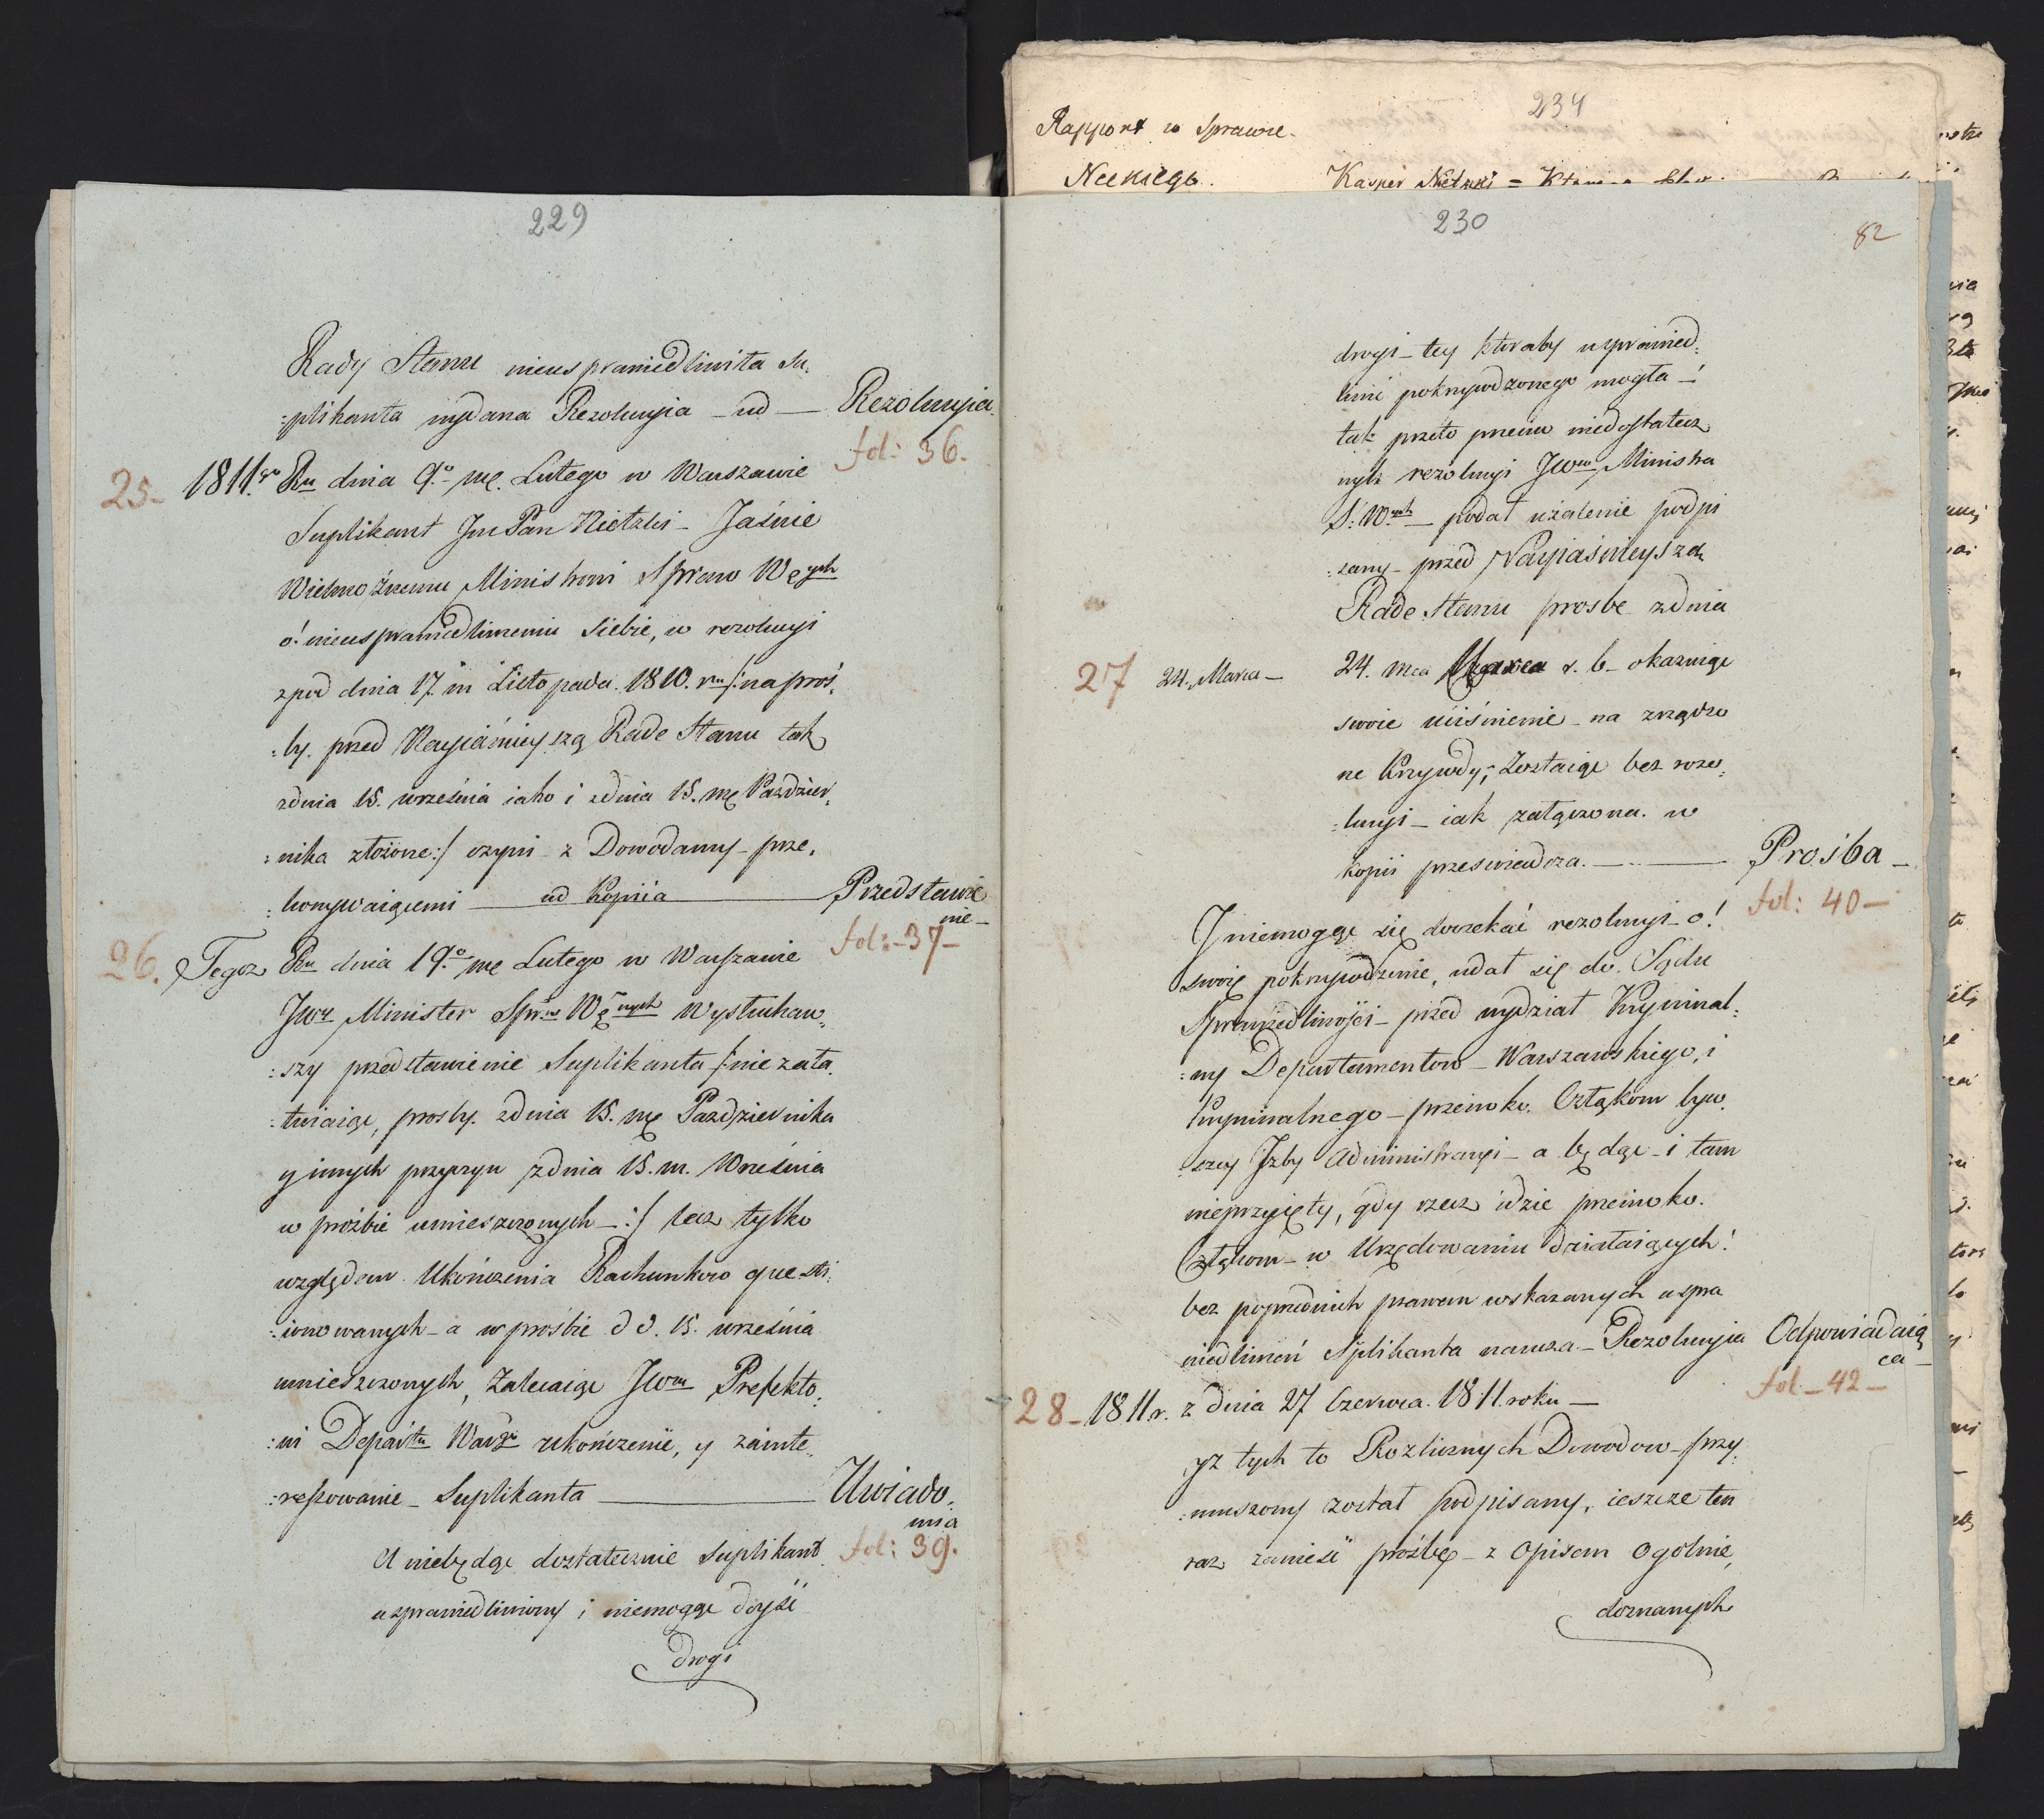 229
Rady Stanu nieusprawiedliwiła Su,
:plikanta wydana Rezolucyia – ud — Rezolucyia
fol: 36.
25– 1811.go Ru dnia 9.o mę. Lutego w Warszawie
Suplikant Jm Pan Nietzki – Jaśnie
Wielmożnemu Ministrowi Spraw Węych
o! nieusprawiedliwieniu siebie, w rezolucyi
zpod dnia 17. m Listopada. 1810. ru /: na proś,
:by. przed Nayiaśnieyszą Rade Stanu tak
zdnia 15. września iako i zdnia 15. mę Paździer,
:nika złożone :/ czyni – z Dowodamy – prze,
:konywaiącemi — ud Kopiia — Przedstawie
nie –
fol: – 37 –
26. Tegoz Ru dnia 19.o mę Lutego w Warszawie
JWy Minister Spraw Węnych Wysłuchaw,
:szy przedstawienie Suplikanta /: nie zała,
:twiaiąc, prosby. zdnia 15. mę Pazdziernika
y innych przyczyn zdnia 15. m. Września
w proźbie umieszczonych – :/ lecz tylko
względem Ukończenia Rachunkow questi,
:ionowanych – a w prośbie d d. 15. września
umieszczonych, Zalecaiąc JWmu Prefekto,
:wi Departu Warszo ukończenie, y zainte,
:ressowanie – Suplikanta — Uwiado,
mia
fol: 39.
A niebędąc dostatecznie Suplikant
usprawiedliwiony i niemogąc doyść
drogi
234
Rapport w Sprawie.
Neckiego.
Kasper Nietzki =
230
82
drogi – tey ktoraby usprawied,
liwić pokrzywdzonego mogła –!
tak przeto przeciw niedostatecz
nych rezolucyi JWgo Ministra
S: W.nych – podał użalenie podpi
:sany – przed Nayiaśnieyszą
Rade Stanu prosbe zdnia
27 24. Marca – 24. mca Marca r. b – okazuiąc
swoie uciśnienie – na zrządzo
ne Krzywdy; Zostaiąc bez rezo,
:lucyi – iak załączona. w
kopii przeswiadcza. — Prośba –
fol: 40 –
J niemogąc się doczekać rezolucyi – o!
swoię pokrzywdzenie, udał się do. Sądu
Sprawiedliwości – przed wydział Kryminal,
:ny Departamentow – Warszawskiego, i
kryminalnego – przeciwko. Członkom byw,
:szey Jzby Administracyi – a będąc – i tam
nieprzyięty, gdy rzecz idzie przeciwko.
Członkom – w Urzędowaniu działaiących!
bez poprzednich prawem wskazanych uspra
wiedliwień Splikanta narusza – Rezolucyia Odpowiadaią
ca –
fol – 42 –
28 – 1811 r. z dnia 27 Czerwca. 1811. roku —
yz tych to Rozlicznych Dowodow – przy,
:muszony został podpisany, ieszcze ten
raz zanieść proźbę – z opisem ogolnie,
doznanych